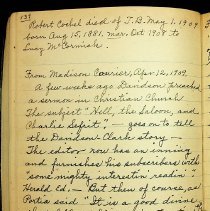 134
Robert Cochel died of T.B. May 1, 1909
born Aug 15, 1881, mar. Oct 1908 to
Lucy McCormick.
From Madison Courier, Apr. 12, 1909.
A few weeks ago Davidson preached
a sermon in Christian Church
The subject "Hell, the Saloon, and
Charlie Sefrit", — goes on to tell
the Davidson Clark story —
The editor now has an inning
and furnishes his subscribers with
"some mighty interestin' readin'".
Herald Ed. — But then of course, as
Portia said "It is a good divine